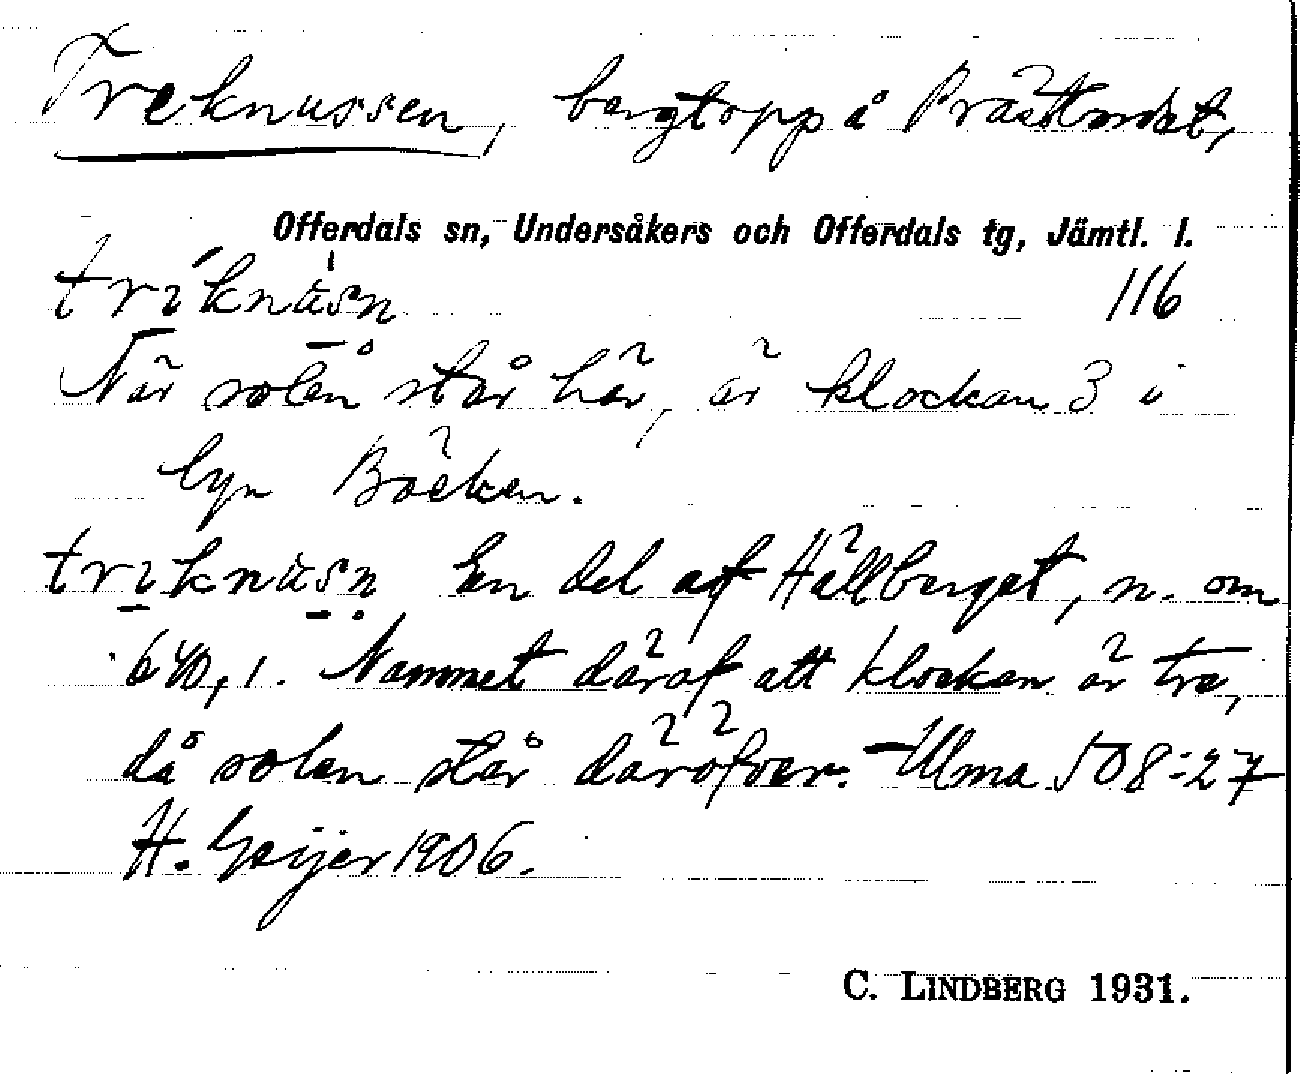 Treknussen, bergtopp å Prästberdet,
Offerdals sn, Undersåkers och Offerdals tg, Jämtl. l.
tríknúsn 116
När solen står här, är klockan 3 i
byn Bäcken.
triknusn En del af Hällberget, n. om
640,1. Namnet däraf att klockan är tre,
då solen står däröfver. Ulma 508:27
H. Geijer 1906.
C. LINDBERG 1931.